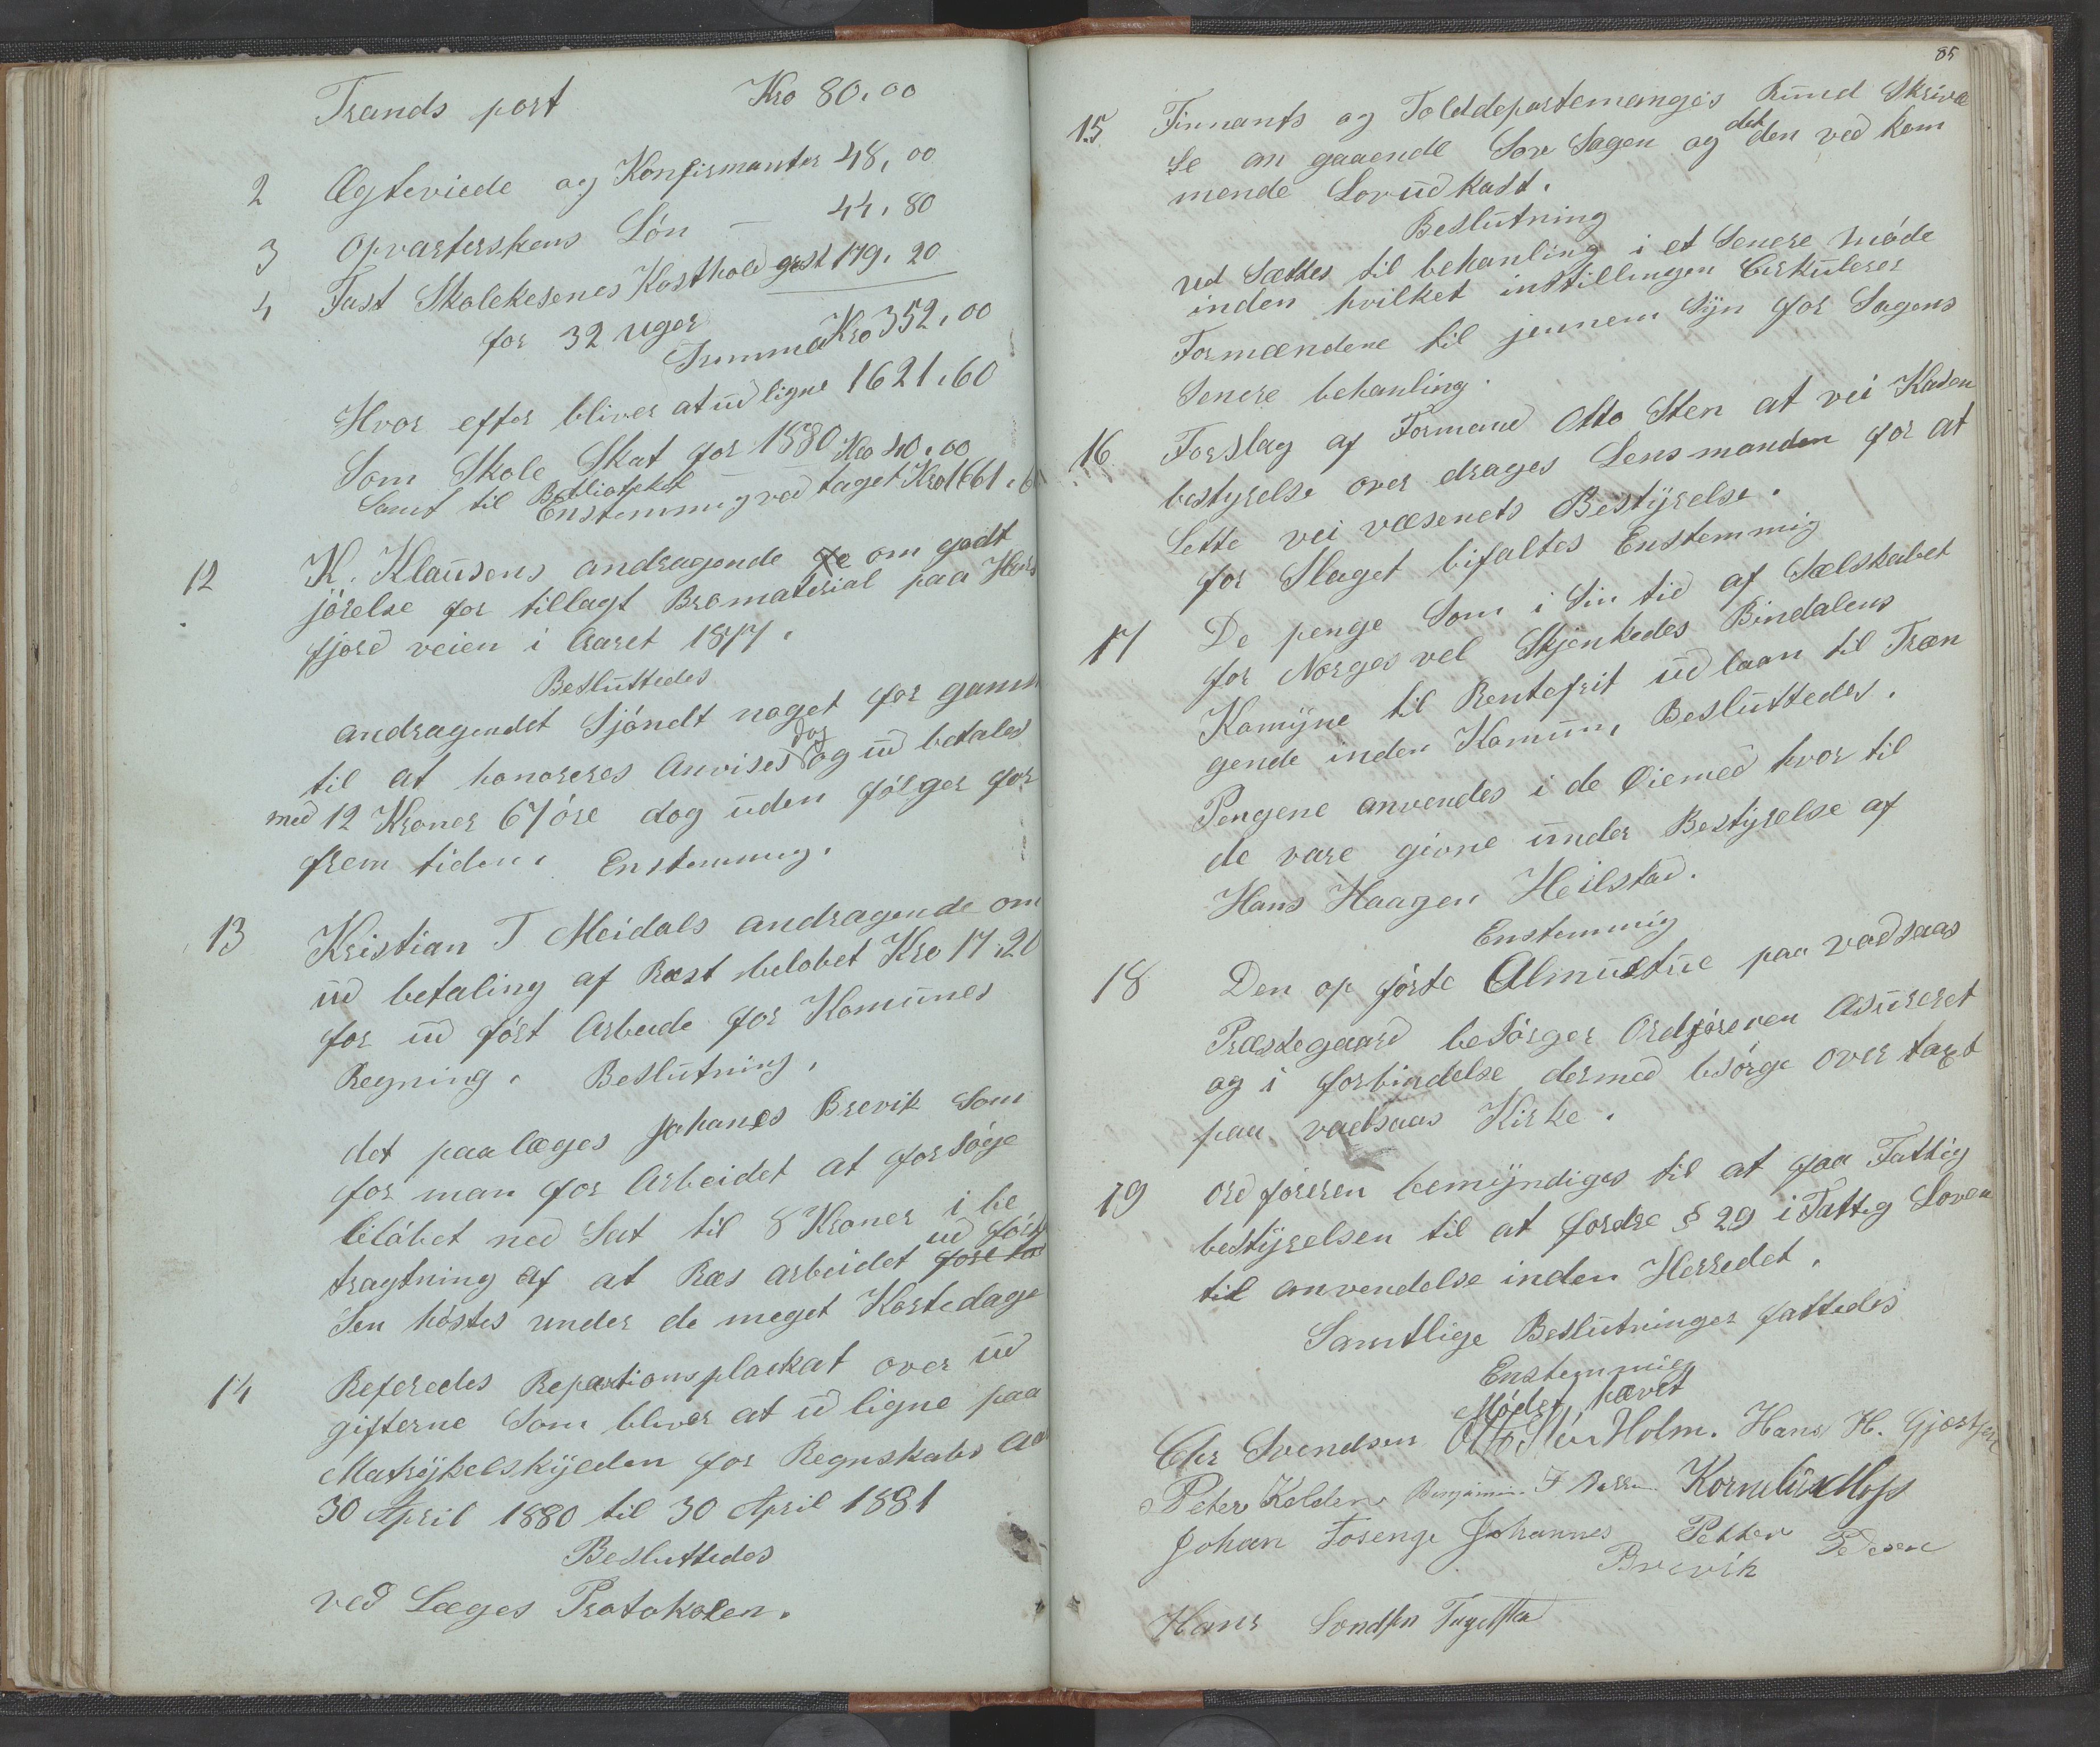 Trands port Kro 80,00
2 Ægteviede og Konfirmanter 48,00
3 Opvarterskens Lön — 44,80
4 Fast Skolekesenes Kosthold gost 179,20
for 32 uger
Summa Kro 352,00
Hvor efter bliver at ud ligne 1621,60
Som Skole Skat for 1880
Samt til Bibliotheket Kro 40,00
Enstemmig ved taget Kro 1661,60
12 K. Klausens andragende om godt
jörelse for tillagt Bromaterial paa
fjord veien i Aaret 1877.
Besluttedes
andragendet Sjöndt noget for gammelt
til at honoreres Anvises dog og ud betales
med 12 Kroner 67 öre dog uden fölger for
frem tiden. Enstemmig.
13 Kristian T Meidals andragende om
ud betaling af Ræst belobet Kro 17,20
for ud fört Arbeide for Komunes
Regning. Beslutning.
det paalæges Johanes Brevik Som
for man for Arbeidet at forsöge
belöbet ned Sat til 8 Kroner i be
tragtning af at Ræs arbeidet ud fört
Sen höstes under de meget Korte dage
14 Referedes Repartionsplackat over ud
gifterne Som bliver at ud ligne paa
Matrÿkelskÿlden for Regnskabs Aar
30 April 1880 til 30 April 1881
Besluttedes
ved Læges Protokolen.
85
15 Finnants og Tolddepartemanges Rund Skrivel
se an gaaende Sore Sagen og det den ved kom
mende Lovudkast.
Beslutning
ud Sættes til behanling i et Senere Möde
inden hvilket instillingen Cirkulerer
Formændene til jennem Sÿn for Sagens
Senere behanling.
16 Forslag af Formand Otto Sten at vei Kasen
bestyrelse over drages Lensmanden for at
Lette vei væsenets Bestÿrelse.
for Slaget bifaltes Enstemmig
17 De penge Som i Sin tid af Sælskabet
for Norges vel Skjenkedes Bindalens
Komÿne til Rentefrit ud laan til Træn
gende inden Komun, Besluttedes.
Pengene anvendes i de Öiemed hvor til
de vare givne under Bestÿrelse af
Hans Haagen Heilstad.
Enstemmig
18 Den op förte Almustue paa vadsaas
Præstegaard besörger Ordföreren Asureret
og i forbindelse dermed bsörge over taxt
paa vadsaas Kirke.
19 ord föreren bemÿndiges til at faa Fattig
bestÿrelsen til at fordre § 29 i Fattig Loven
til anvendelse inden Herredet.
Samtlige Beslutninger fattedes
Enstemmig
Mödet hævet
Chr Svendsen Otto Sten Holm. Hans H. Gjæstfjord
Peter Kolden Benjamin F Kornelius Moss
Johan Fosenge Johannes Brevik Petter Pedersen
Hans Svendsen